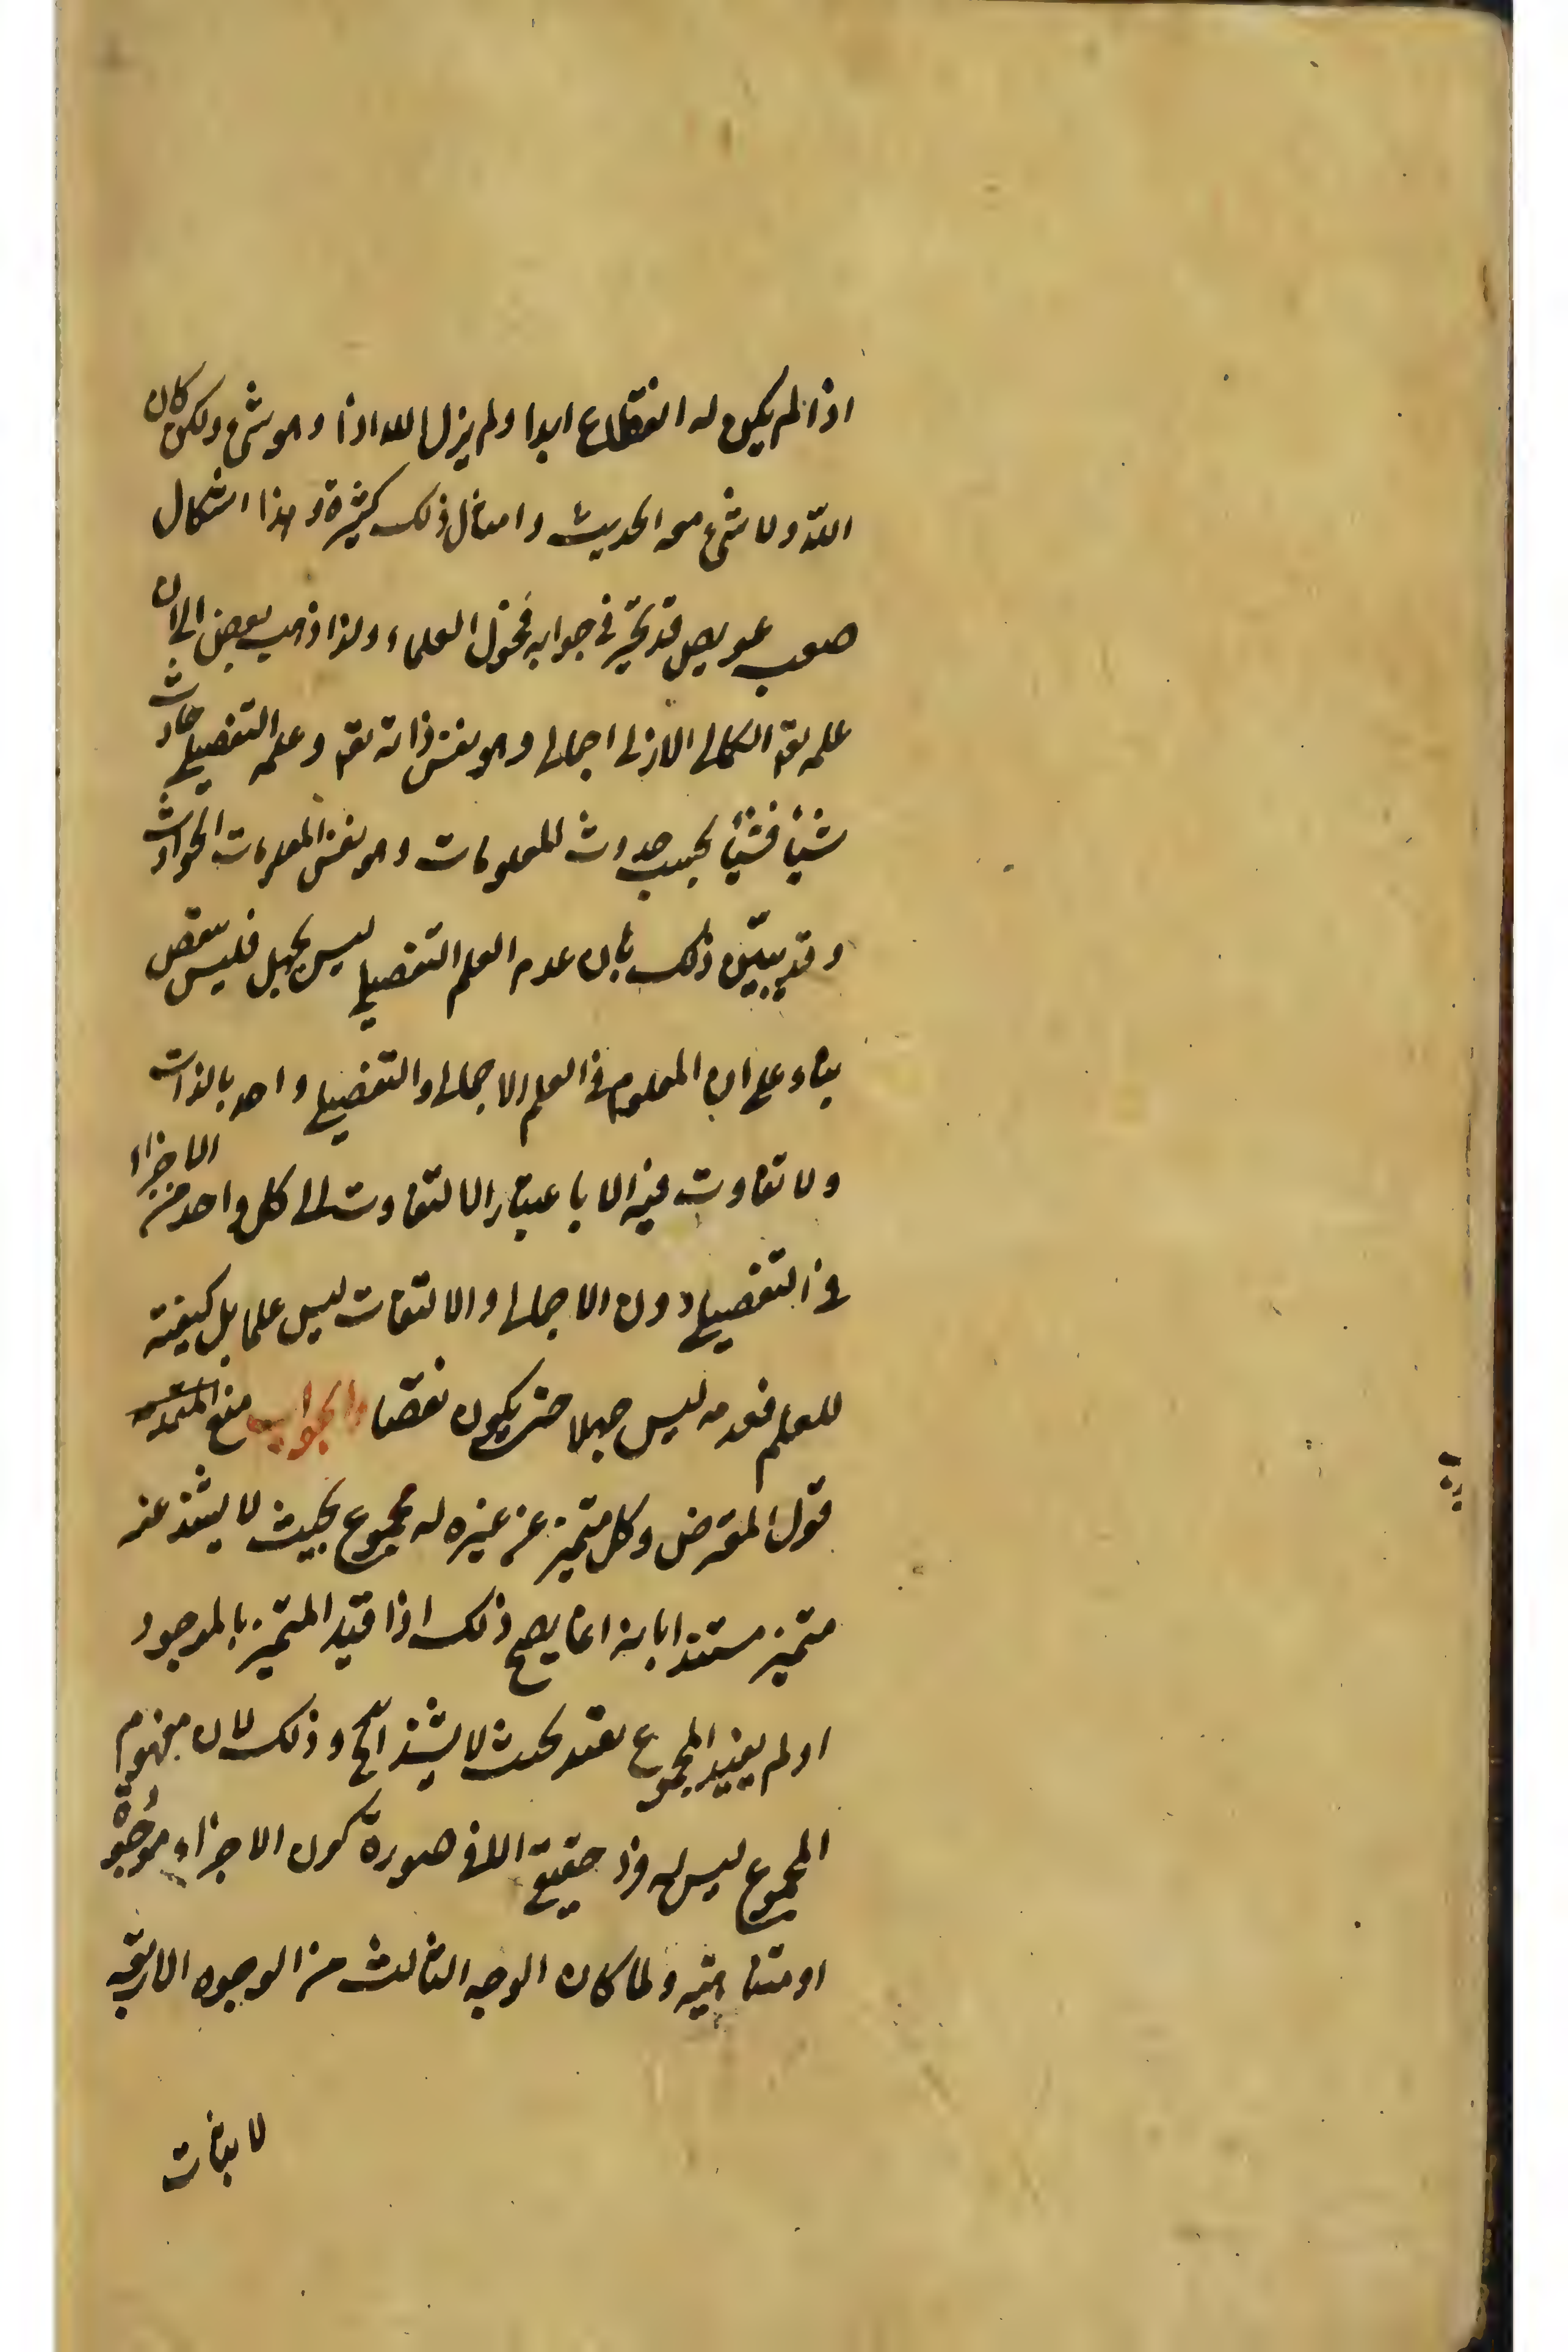 اذا لم يكن له انقطاع ابدا ولم يزل الله اذا وهو شئ ولكن كان
الله ولا شئ معه الحديث وامثال ذلك كثيرة وهذا اشكال
صعب عويص قد تحيّر في جوابه فحول العلماء ولذا ذهب بعض الى ان
علمه تع الكمالى الازلى اجمالى وهو نفس ذاته تع وعلمه التفصيلى حادث
شيئا فشيئا بحسب حدوث المعلومات وهو نفس المعلومات الحوادث
وقد يبيّن ذلك بان عدم العلم التفصيلى ليس بجهل فليس بنقص
بناء على ان المعلوم في العلم الاجمالى والتفصيلى واحد بالذات
ولا تفاوت فيه الا باعتبار الالتفات الى كل واحد من الاجزاء
في التفصيلى دون الاجمالى والالتفات ليس علما بل كيفية
للعلم فعدمه ليس جهلا حتى يكون نقصا والجواب منع المقدمة
قول المعترض وكل متميز عن غيره له مجموع بحيث لا يشذ عنه
متميز مستندا بانه انما يصح ذلك اذا قيّد المتميز بالموجود
او لم يقيد المجموع بقيد بحيث لا يشذ الخ وذلك لان مفهوم
المجموع ليس له فرد حقيقة الا في صورة كون الاجزاء موجودة
او متناهية ولما كان الوجه الثالث من الوجوه الاربعة
لاثبات